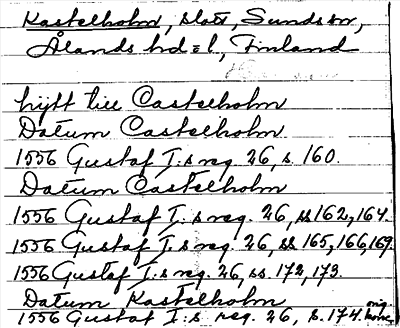 Kastelholm, slott, Sunds sn,
Ålands hd=l, Finland
hijtt till Castelholm
Datum Castelholm
1556 Gustaf I:s reg. 26, s. 160.
Datum Castelholm
1556 Gustaf I:s reg. 26, ss 162, 164.
1556 Gustaf I:s reg. 26, ss. 165, 166, 169.
1556 Gustaf I:s reg. 26, ss. 172, 173.
Datum Kastelholm
1556 Gustaf I:s reg. 26, s. 174. orig.